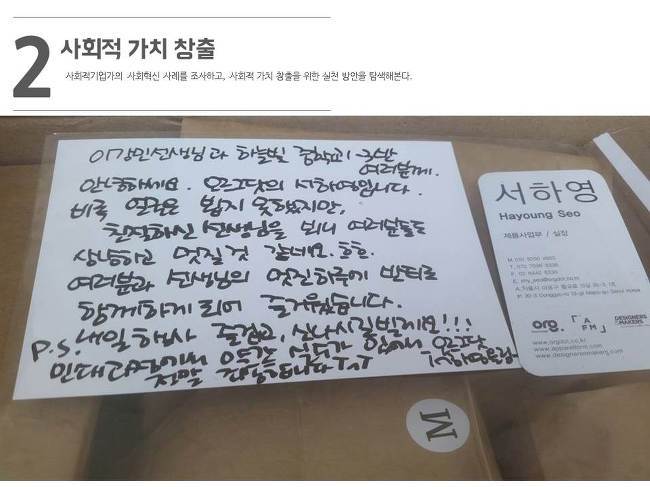 2
사회적 가치 창출
사회적기업가의 사회혁신 사례를 조사하고, 사회적 가치 창출을 위한 실천 방안을 탐색해본다.
이강민선생님과 하늘빛 중학교 3반
여러분께.
안녕하세요. 오르그닷의 서하영입니다.
비록 얼굴은 뵙지 못했지만,
친절하신 선생님을 뵈니 여러분들도
상냥하고 멋질 것 같네요. 호호.
여러분과 선생님의 멋진하루에 반티로
함께하게 되어 즐거웠습니다.
P.S. 내일행사 즐겁고, 신나시길빌게요!!!
오르그닷
서하영드림
정말 감사합니다 ㅜㅜ
서하영
Hayoung Seo
제품사업부 / 실장
org.
AFM
DESIGNERS&MAKERS
www.orgdot.co.kr
www.designersnmakers.com
M